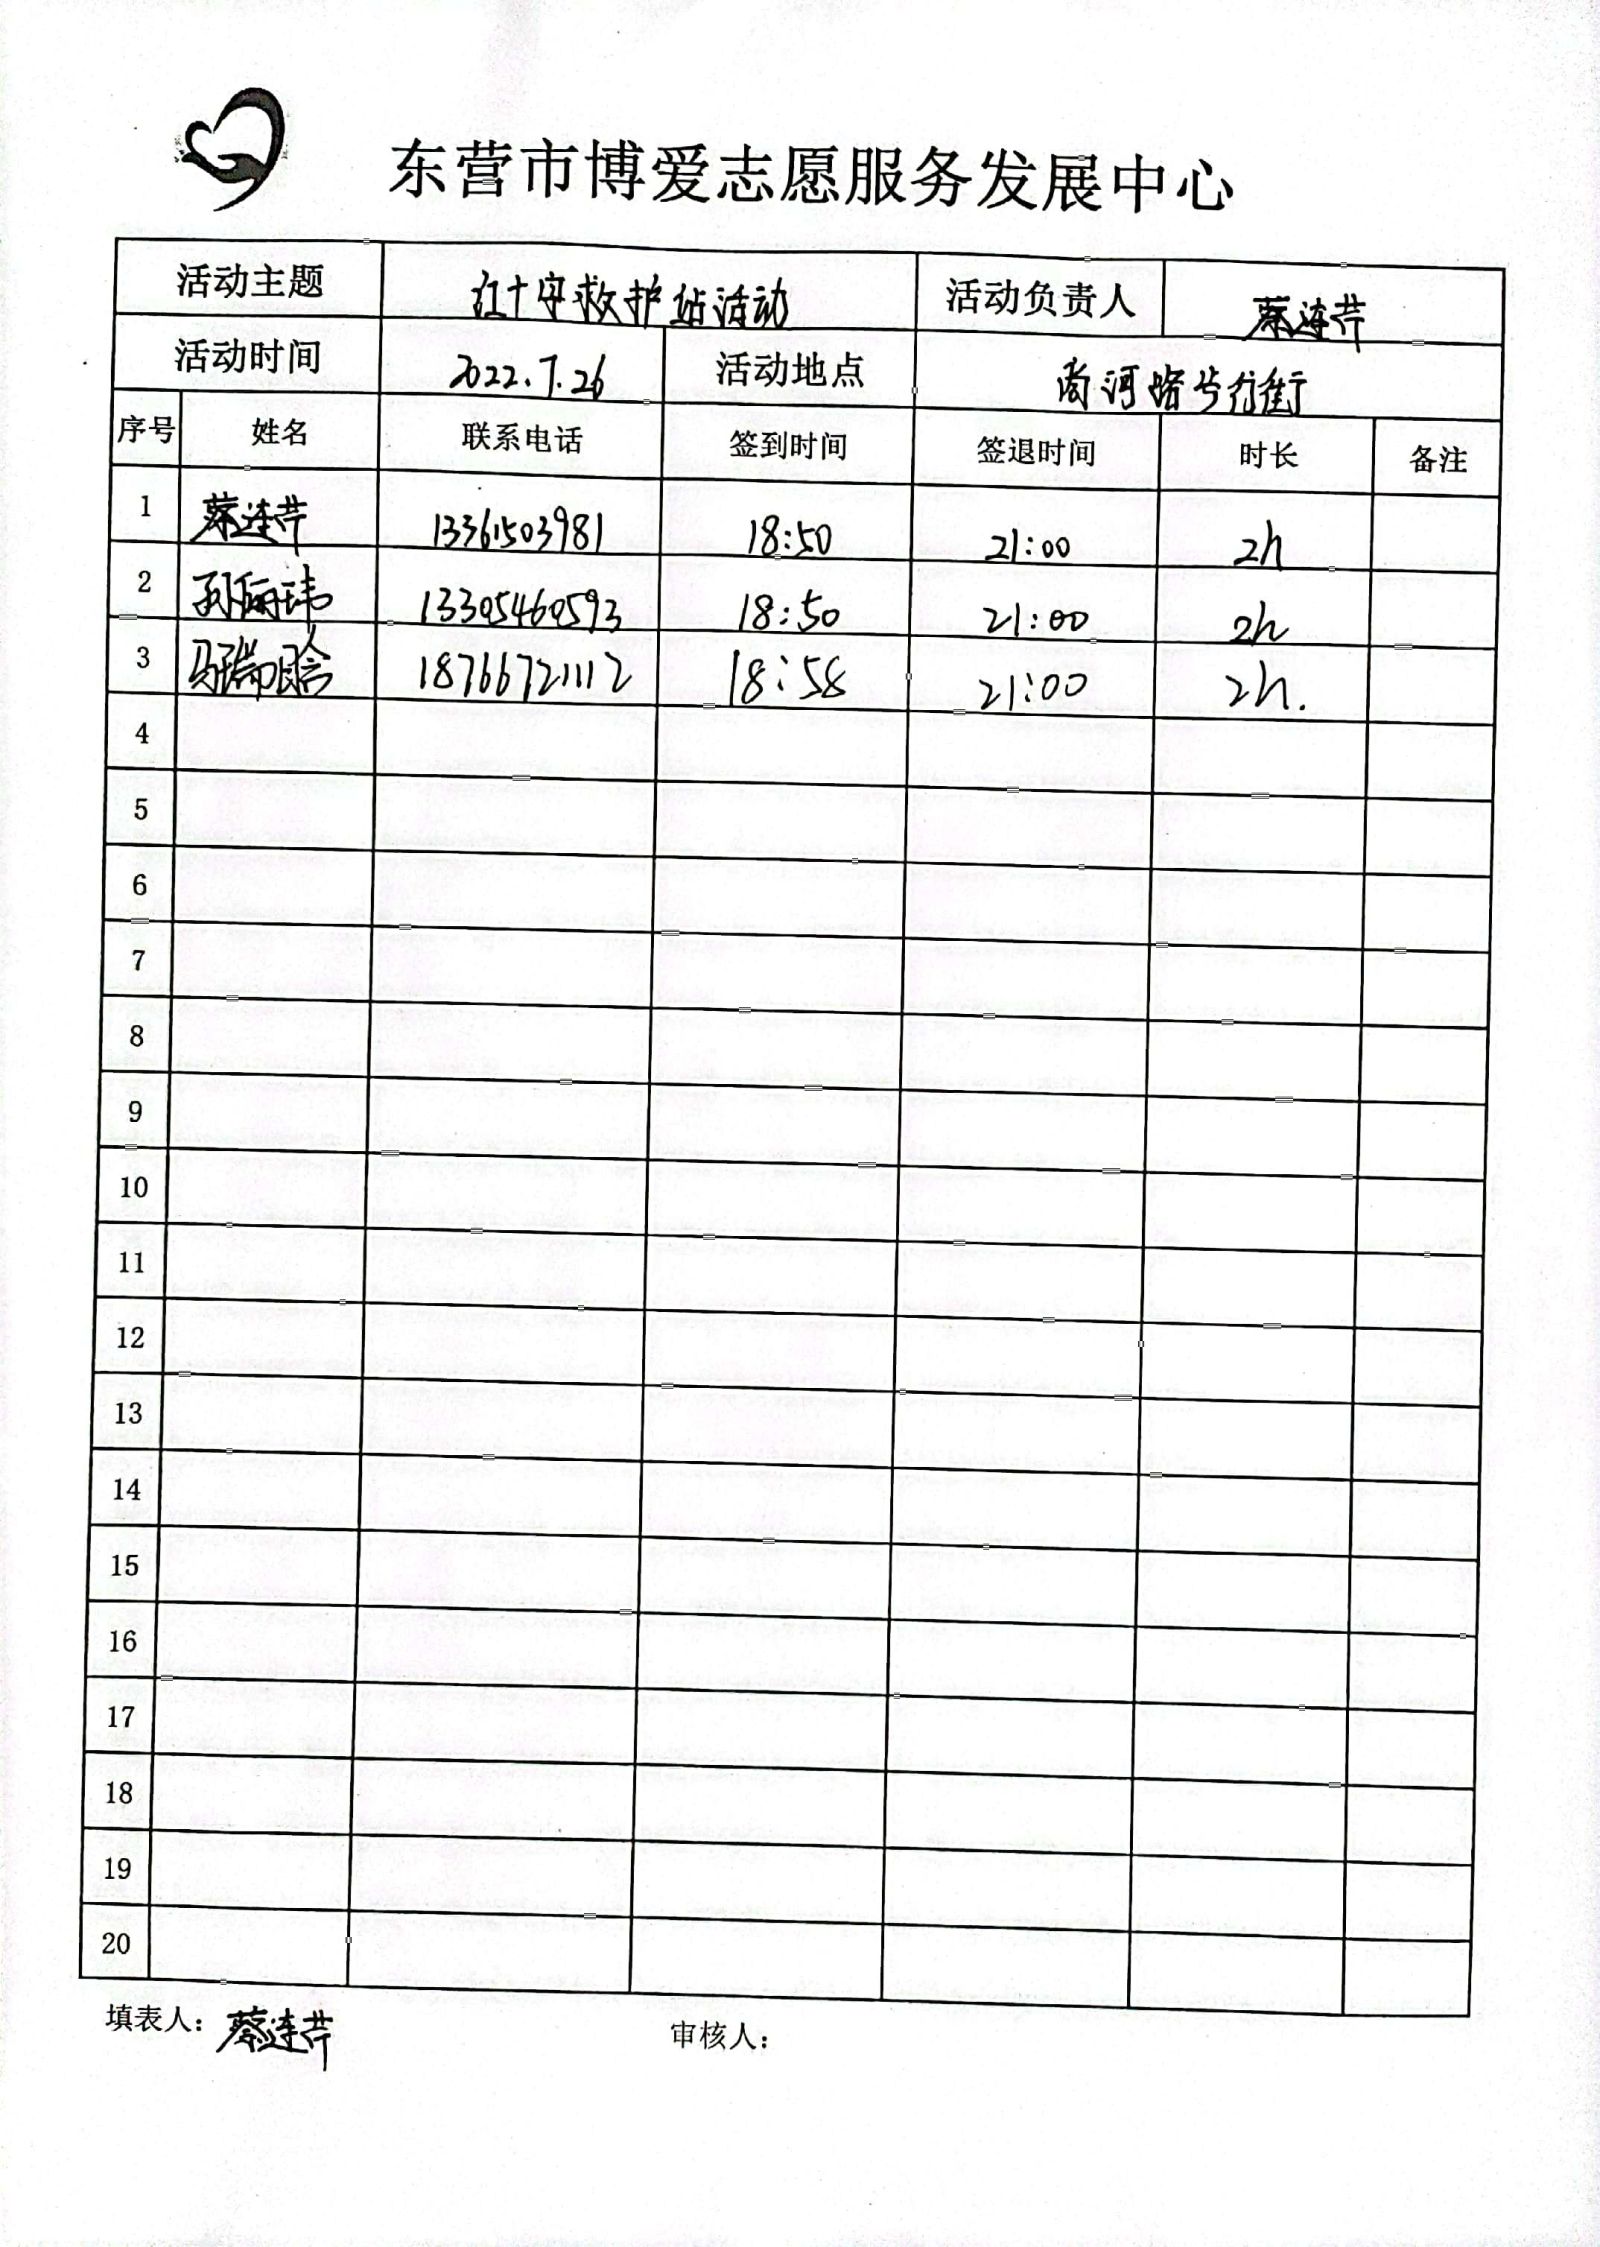 东营市博爱志愿服务发展中心
活动主题 红十字救护站活动 活动负责人 蔡连芹
活动时间 2022.7.26 活动地点 黄河路步行街
序号 姓名 联系电话 签到时间 签退时间 时长 备注
1 蔡连芹 13361503981 18:50 21:00 2h
2 孙丽玮 13305460593 18:50 21:00 2h
3 马瑞晗 18766721112 18:58 21:00 2h.
4
5
6
7
8
9
10
11
12
13
14
15
16
17
18
19
20
填表人：蔡连芹 审核人：